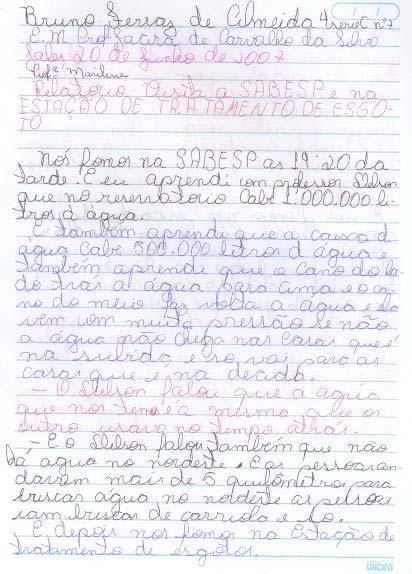 Bruno Ferraz de Almeida 4ª serie C nº7
E.M. Profª Sacira de Carvalho da Silva
Sales 20 de Junho de 2007
Profª Marilene
Relatorio Visita a SABESP e na
ESTAÇÃO DE TRATAMENTO DE ESGO-
TO
Nós fomos na SABESP as 14:20 da
tarde. E eu aprendi com professor Stelson
que no reservatorio cabe 1.000.000 li-
tros d água.
E também aprendi que a caixa d
agua cabe 500.000 litros d água e
também aprendi que o cano do la-
do tras a água para cima e o ca-
no do meio faz volta a agua e ela
vem com muita pressão se não
a água não chega nas casas que é
na subida e so vai para as
casas que é na decida.
- O Stelson falou que a agua
que nos temos é a mesma que os
outro usava no tempo atrás.
- E o Stelson falou também que não
há agua no nordeste. E as pessoas an-
davam mais de 5 quilômetros para
buscar água no nordeste as pessoas
iam buscar de carriola e
E depois nos fomos na Estação de
tratamento de esgotos.
tilibra